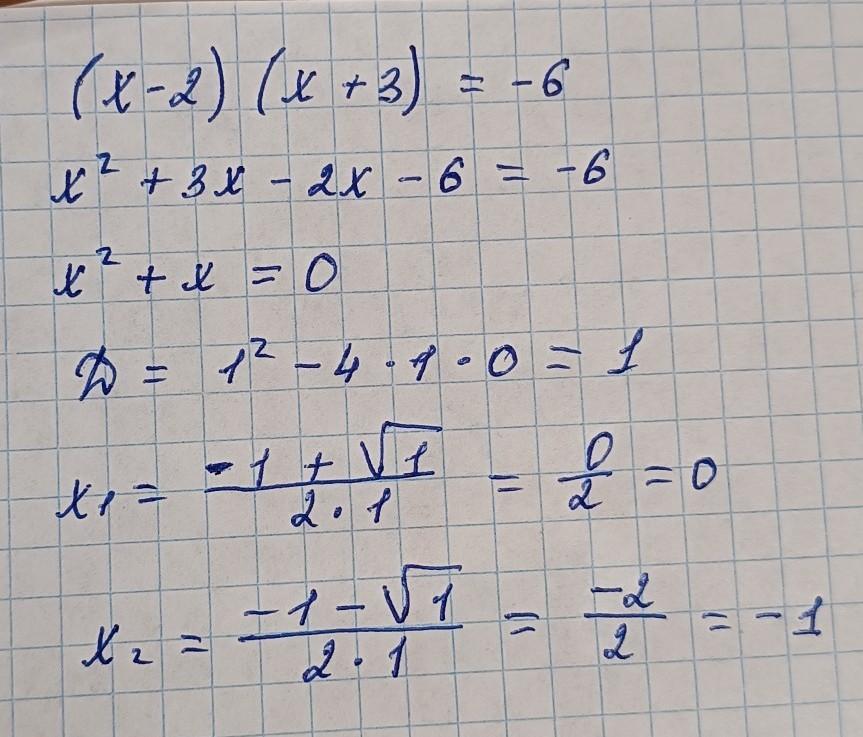 (x-2)(x+3) = -6
x² + 3x - 2x - 6 = -6
x² + x = 0
D = 1² - 4 · 1 · 0 = 1
x₁ = (-1 + √1)/(2 · 1) = 0/2 = 0
x₂ = (-1 - √1)/(2 · 1) = -2/2 = -1